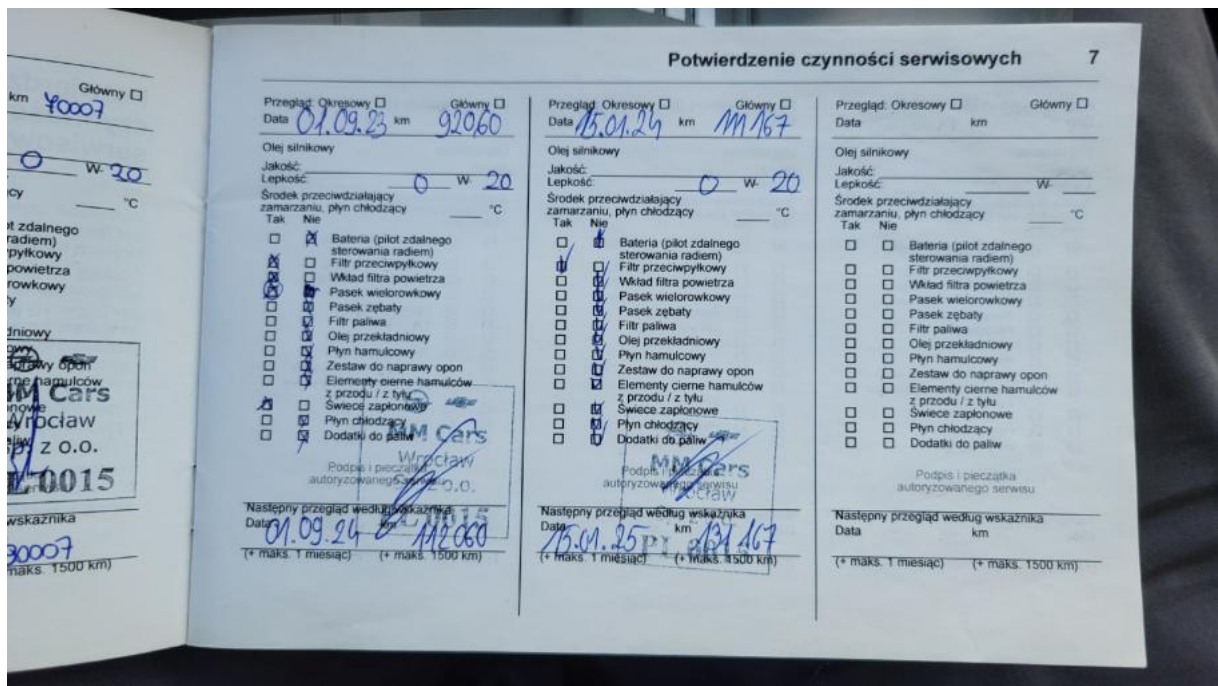 Główny
km 70007
0 W- 20
°C
ot zdalnego
radiem)
pyłkowy
powietrza
rowkowy
ty
dniowy
naprawy opon
rne hamulców
MM Cars
Wrocław
Sp. z o.o.
PL 0015
wskaźnika
90007
maks. 1500 km)
Potwierdzenie czynności serwisowych 7
Przegląd: Okresowy Główny
Data 01.09.23 km 92060
Olej silnikowy
Jakość:
Lepkość: 0 W- 20
Środek przeciwdziałający
zamarzaniu, płyn chłodzący °C
Tak Nie
Bateria (pilot zdalnego
sterowania radiem)
Filtr przeciwpyłkowy
Wkład filtra powietrza
Pasek wielorowkowy
Pasek zębaty
Filtr paliwa
Olej przekładniowy
Płyn hamulcowy
Zestaw do naprawy opon
Elementy cierne hamulców
z przodu / z tyłu
Świece zapłonowe
Płyn chłodzący
Dodatki do paliw
MM Cars
Wrocław
Sp. z o.o.
PL 0015
Podpis i pieczątka
autoryzowanego serwisu
Następny przegląd według wskaźnika
Data 01.09.24 km 112060
(+ maks. 1 miesiąc) (+ maks. 1500 km)
Przegląd: Okresowy Główny
Data 15.01.24 km 111167
Olej silnikowy
Jakość:
Lepkość: 0 W- 20
Środek przeciwdziałający
zamarzaniu, płyn chłodzący °C
Tak Nie
Bateria (pilot zdalnego
sterowania radiem)
Filtr przeciwpyłkowy
Wkład filtra powietrza
Pasek wielorowkowy
Pasek zębaty
Filtr paliwa
Olej przekładniowy
Płyn hamulcowy
Zestaw do naprawy opon
Elementy cierne hamulców
z przodu / z tyłu
Świece zapłonowe
Płyn chłodzący
Dodatki do paliw
MM Cars
Wrocław
PL 0015
Podpis i pieczątka
autoryzowanego serwisu
Następny przegląd według wskaźnika
Data 15.01.25 km 131167
(+ maks. 1 miesiąc) (+ maks. 1500 km)
Przegląd: Okresowy Główny
Data km
Olej silnikowy
Jakość:
Lepkość: W-
Środek przeciwdziałający
zamarzaniu, płyn chłodzący °C
Tak Nie
Bateria (pilot zdalnego
sterowania radiem)
Filtr przeciwpyłkowy
Wkład filtra powietrza
Pasek wielorowkowy
Pasek zębaty
Filtr paliwa
Olej przekładniowy
Płyn hamulcowy
Zestaw do naprawy opon
Elementy cierne hamulców
z przodu / z tyłu
Świece zapłonowe
Płyn chłodzący
Dodatki do paliw
Podpis i pieczątka
autoryzowanego serwisu
Następny przegląd według wskaźnika
Data km
(+ maks. 1 miesiąc) (+ maks. 1500 km)